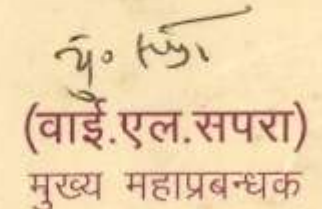 (वाई.एल.सपरा)
मुख्य महाप्रबन्धक